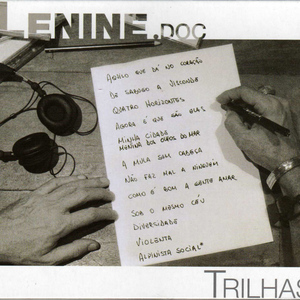 LENINE.DOC
AQUILO QUE DÁ NO CORAÇÃO
DE SABUGO A VISCONDE
QUATRO HORIZONTES
AGORA É QUE SÃO ELAS
MINHA CIDADE
MENINA DOS OLHOS DO MAR
A MULA SEM CABEÇA
NÃO FAZ MAL A NINGUÉM
COMO É BOM A GENTE AMAR
SOB O MESMO CÉU
DIVERSIDADE
VIOLENTA
ALPINISTA SOCIAL
TRILHAS